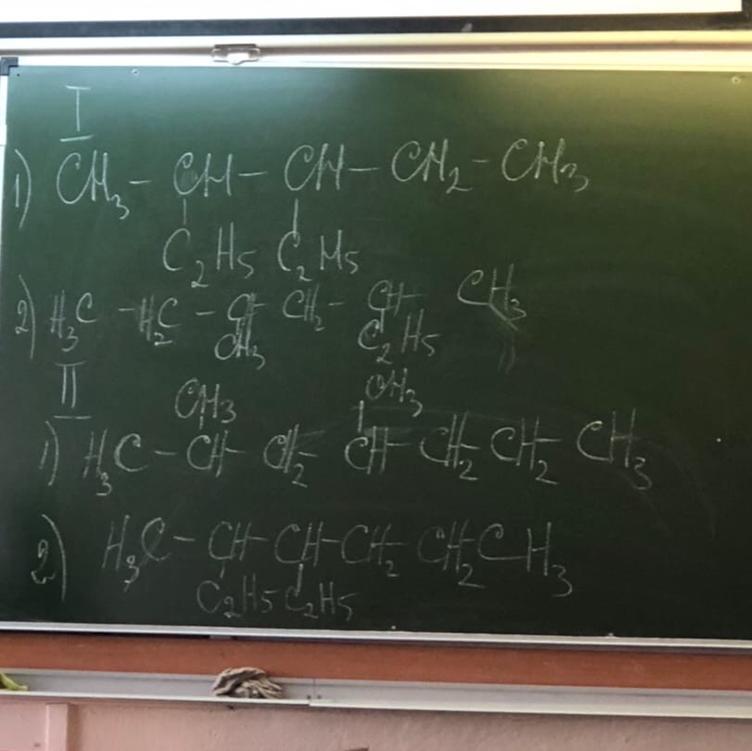 I
1) CH₃ - CH - CH - CH₂ - CH₃
C₂H₅ C₂H₅
2) H₃C - H₂C - CH - CH₂ - CH - CH₃
CH₃ C₂H₅
II
CH₃ CH₃
1) H₃C - CH - CH₂ - CH - CH₂ - CH₂ - CH₃
2) H₃C - CH - CH - CH₂ - CH₂ CH₃
C₂H₅ C₂H₅